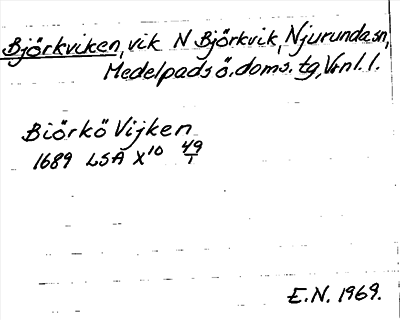 Björkviken, vik N Björkvik, Njurunda sn,
Medelpads ö. doms. tg, Vrnl. l.
Biörkö Vijken
1689 LSA X10 49/1
E.N. 1969.